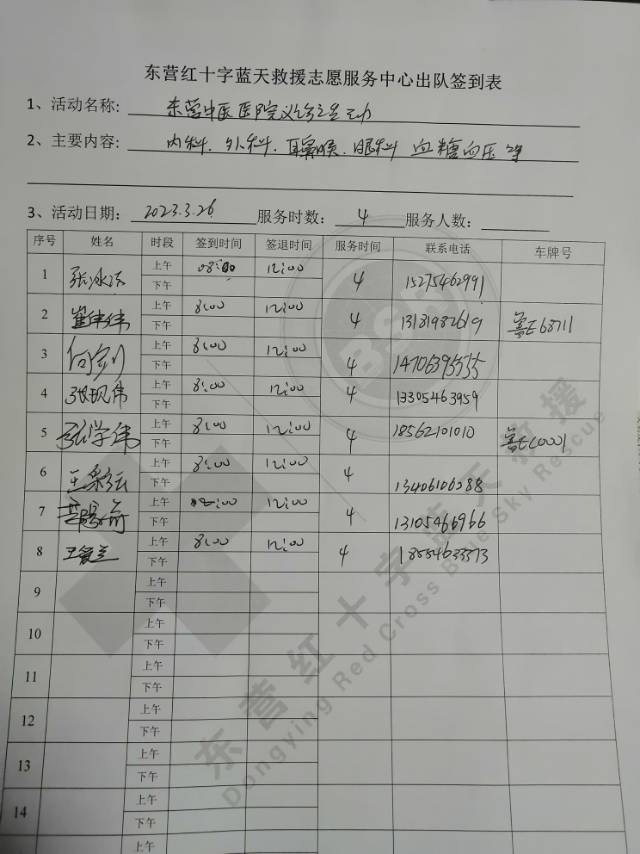 东营红十字蓝天救援志愿服务中心出队签到表
1、活动名称: 东营中医医院义诊活动
2、主要内容: 内科、外科、耳鼻喉、眼科 血糖血压等
3、活动日期: 2023.3.26 服务时数: 4 服务人数:
序号 姓名 时段 签到时间 签退时间 服务时间 联系电话 车牌号
1 上午 08:00 12:00 4 15275462991
下午
2 崔伟伟 上午 8:00 12:00 4 13181982619 鲁E68711
下午
3 上午 8:00 12:00 4 14706395555
下午
4 张现伟 上午 8:00 12:00 4 13305463959
下午
5 张学伟 上午 8:00 12:00 4 18562101010 鲁EC0001
下午
6 上午 8:00 12:00 4 13406106288
下午
7 上午 12:00 4 13105466966
下午
8 上午 8:00 12:00 4 18554633373
下午
9 上午
下午
10 上午
下午
11 上午
下午
12 上午
下午
13 上午
下午
14 上午
下午
上午
东营红十字蓝天救援
Dongying Red Cross Blue Sky Rescue